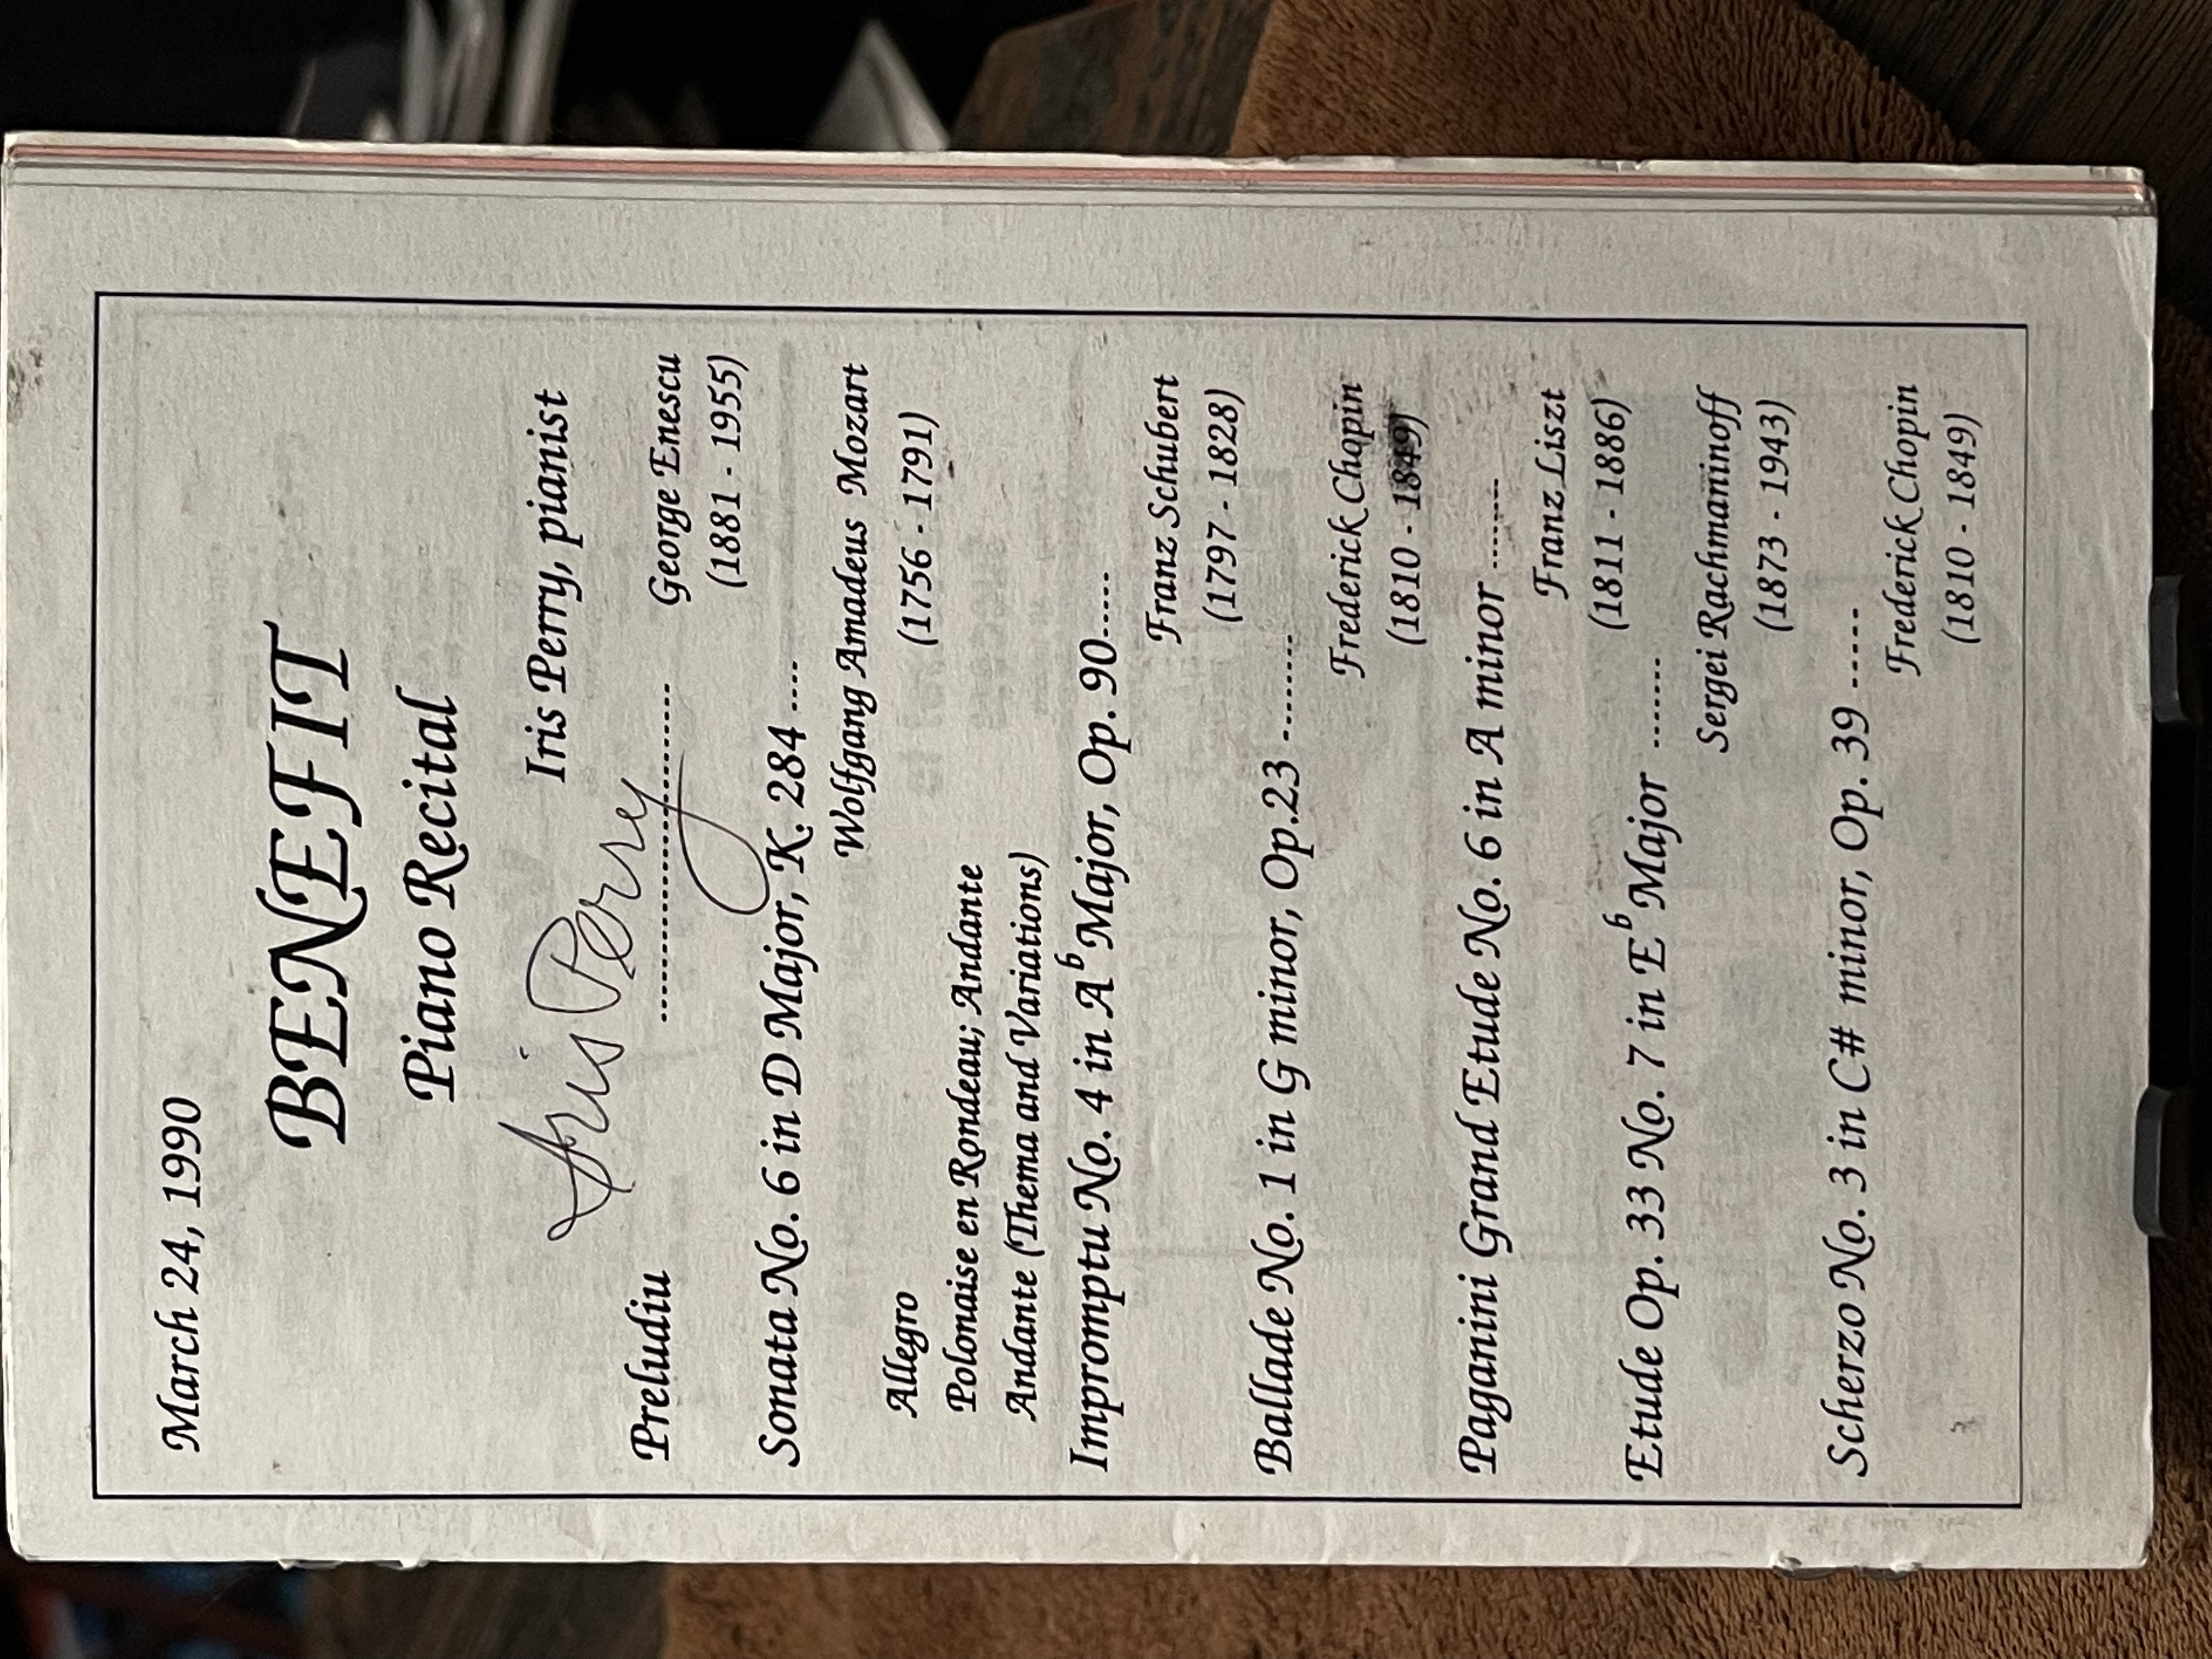 March 24, 1990
BENEFIT
Piano Recital
Iris Perry, pianist
Iris Perry
Preludiu ........................... George Enescu
(1881 - 1955)
Sonata No. 6 in D Major, K. 284 ....
Wolfgang Amadeus Mozart
Allegro (1756 - 1791)
Polonaise en Rondeau; Andante
Andante (Thema and Variations)
Impromptu No. 4 in Ab Major, Op. 90.....
Franz Schubert
(1797 - 1828)
Ballade No. 1 in G minor, Op.23 .........
Frederick Chopin
(1810 - 1849)
Paganini Grand Etude No. 6 in A minor ........
Franz Liszt
(1811 - 1886)
Etude Op. 33 No. 7 in Eb Major ........
Sergei Rachmaninoff
(1873 - 1943)
Scherzo No. 3 in C# minor, Op. 39 .....
Frederick Chopin
(1810 - 1849)